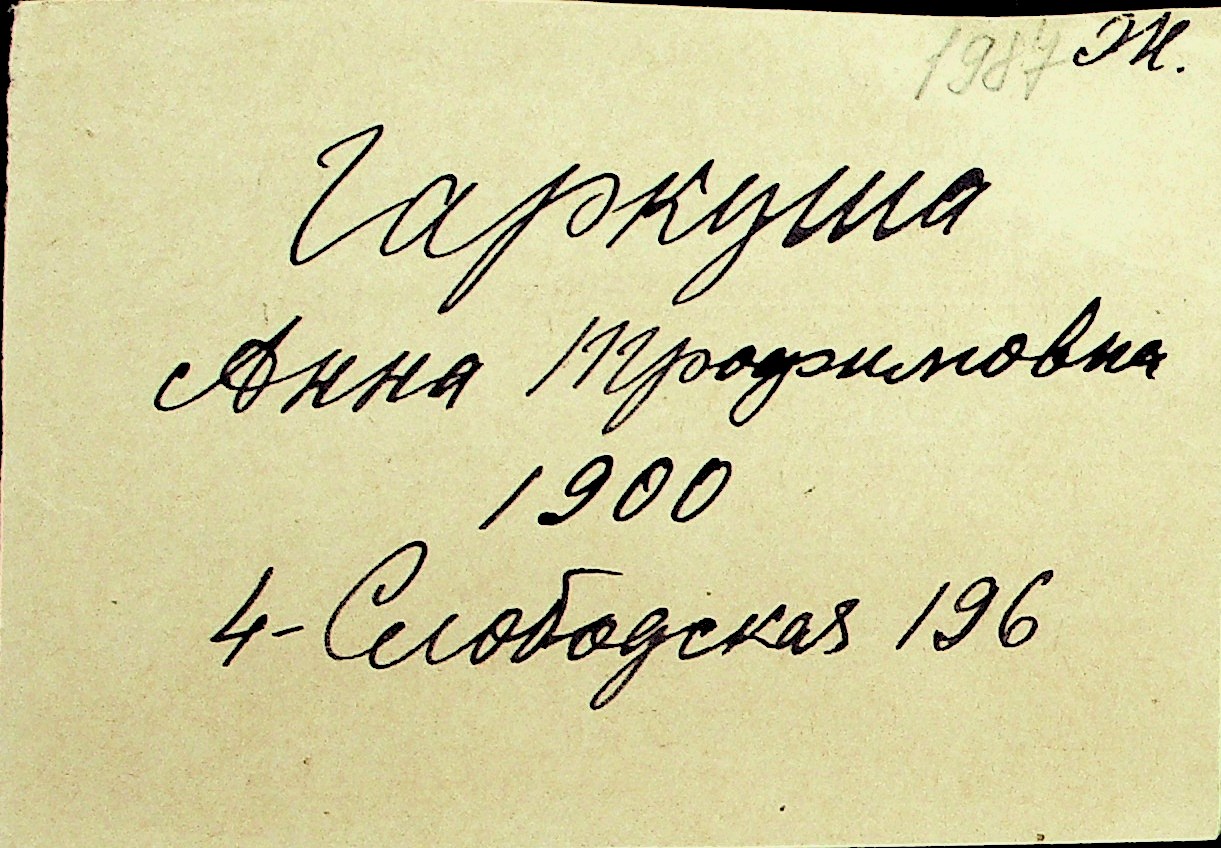 1987 Ж.
Гаркуша
Анна Трофимовна
1900
4-Слободская 196